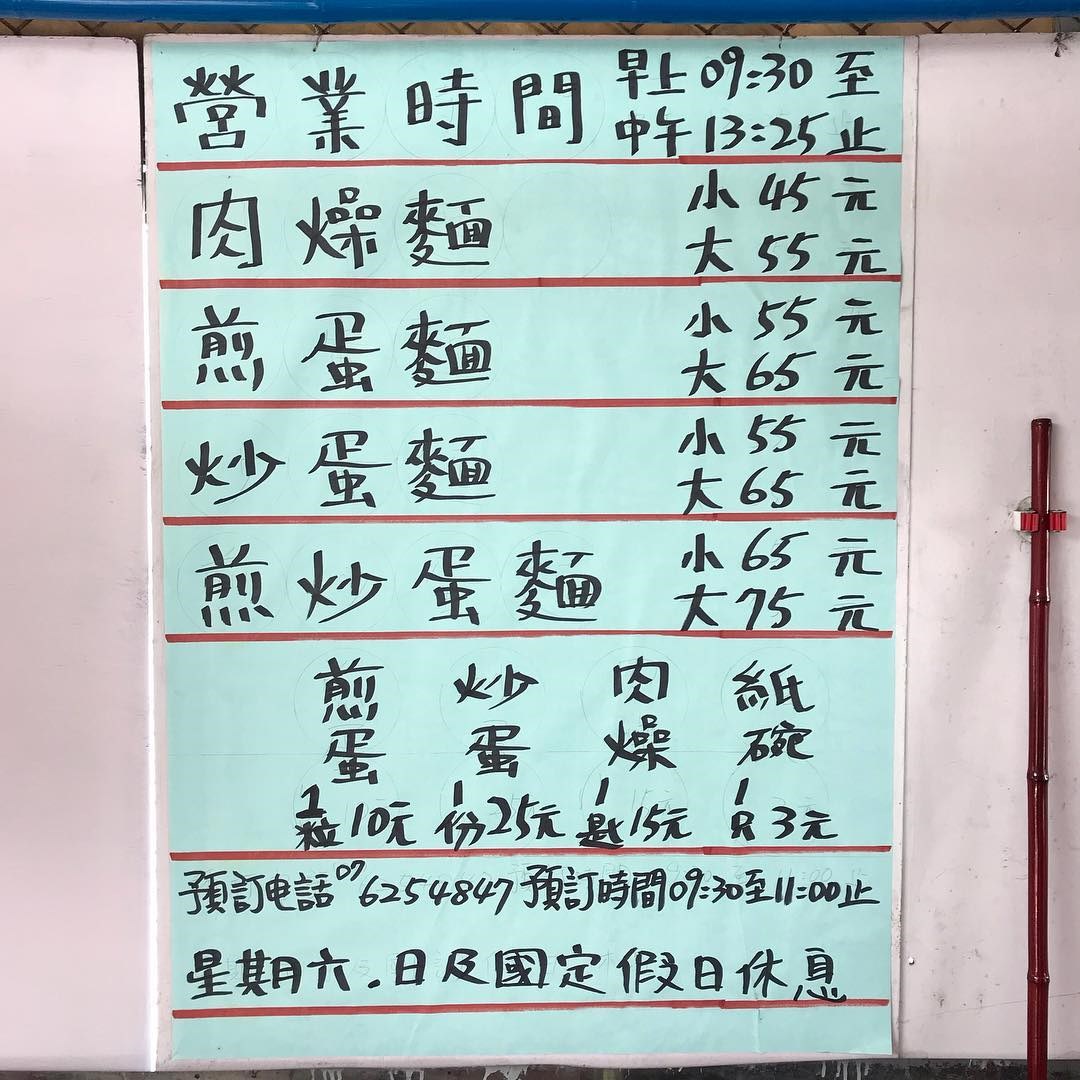 營業時間 早上 09:30 至
中午 13:25 止
肉燥麵 小 45 元
大 55 元
煎蛋麵 小 55 元
大 65 元
炒蛋麵 小 55 元
大 65 元
煎炒蛋麵 小 65 元
大 75 元
煎蛋 1粒10元
炒蛋 1份25元
肉燥 1匙15元
紙碗 1只3元
預訂电話07 6254847 預訂時間09:30至11:00止
星期六.日及國定假日休息